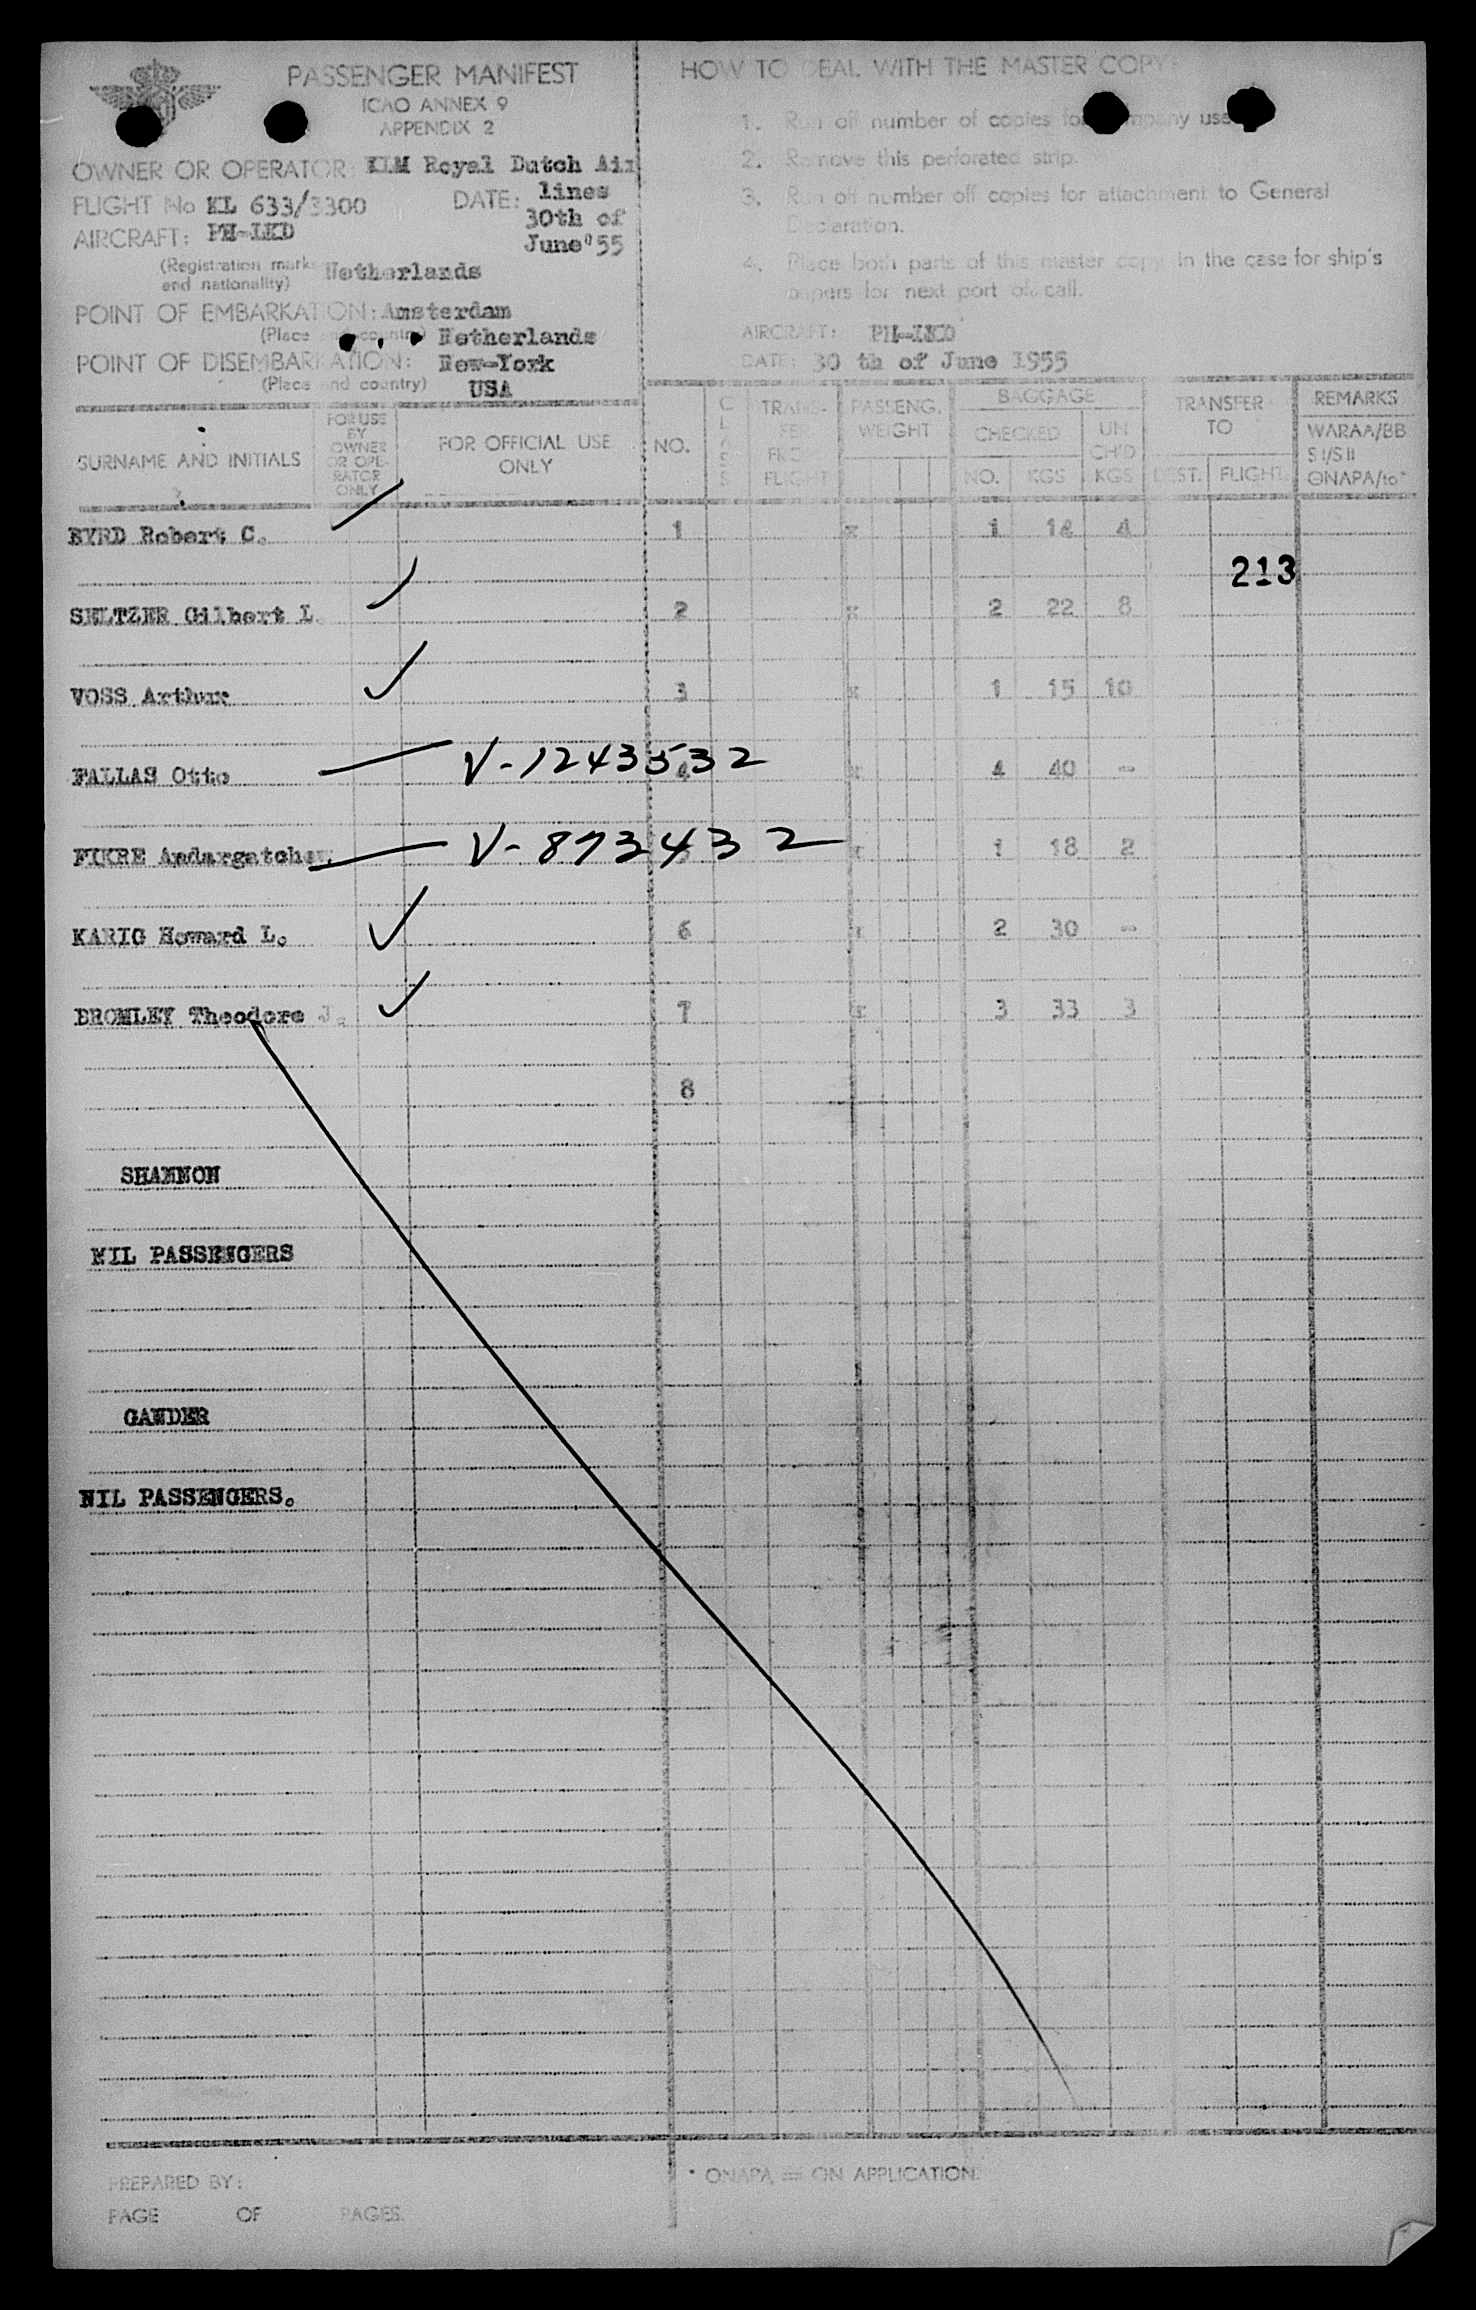 PASSENGER MANIFEST
ICAO ANNEX 9
APPENDIX 2
OWNER OR OPERATOR: KLM Royal Dutch Air
lines
FLIGHT No KL 633/3300 DATE: 30th of
June'55
AIRCRAFT: PH-LKD
(Registration marks and nationality) Netherlands
POINT OF EMBARKATION: Amsterdam
(Place and country) Netherlands
POINT OF DISEMBARKATION: New-York
(Place and country) USA
HOW TO DEAL WITH THE MASTER COPY:
1. Run off number of copies for company use.
2. Remove this perforated strip.
3. Run off number off copies for attachment to General
Declaration.
4. Place both parts of this master copy in the case for ship's
papers for next port of call.
AIRCRAFT: PH-LKD
DATE: 30 th of June 1955
SURNAME AND INITIALS
FOR USE BY OWNER OR OPE- RATOR ONLY
FOR OFFICIAL USE ONLY
NO.
CLASS
TRANS- FER FROM FLIGHT
PASSENG. WEIGHT
BAGGAGE
CHECKED
NO. KGS
UN CH'D KGS
TRANSFER TO
DEST. FLIGHT
REMARKS
WARAA/BB
S I/S II
ONAPA/to*
BYRD Robert C. 1 x 1 4
213
SELTZER Gilbert L. 2 x 2 22 8
VOSS Arthur 3 x 1 15 10
FALLAS Otto V-1243532 4 x 4 40 -
FIKRE Andargatchew V-873432 5 x 1 18 2
KARIG Howard L. 6 x 2 30 -
BROMLEY Theodore J. 7 x 3 33 3
8
SHANNON
NIL PASSENGERS
GANDER
NIL PASSENGERS.
PREPARED BY:
PAGE OF PAGES.
* ONAPA = ON APPLICATION.